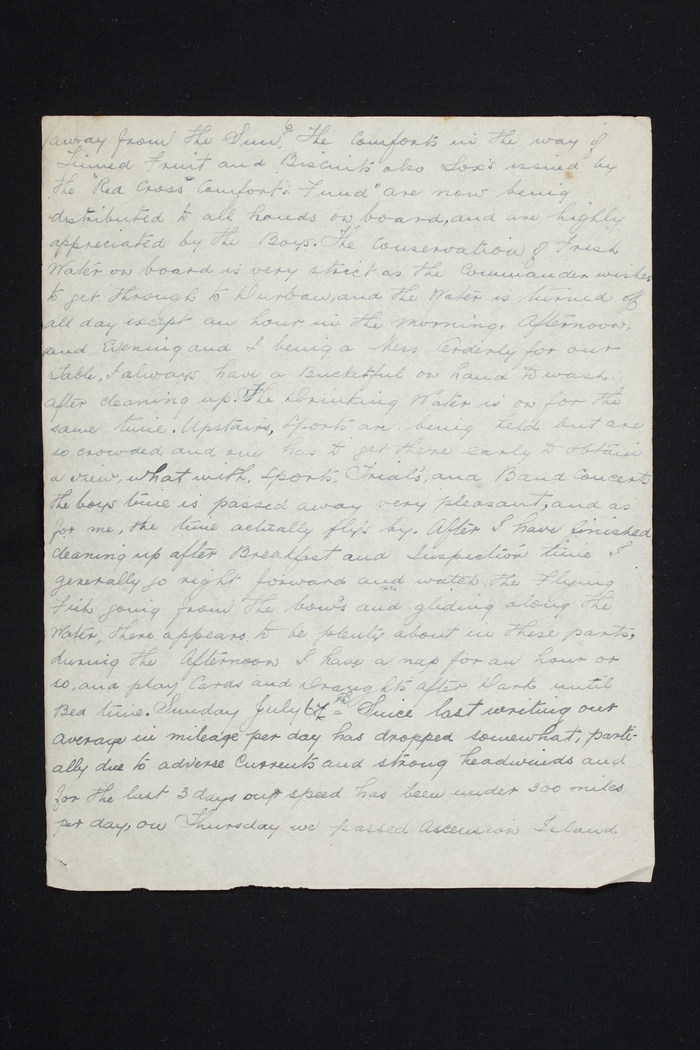 away from the Sun. The Comforts in the way of
Tinned Fruit and Biscuits also Sox's issued by
the "Red Cross" Comfort's Fund" are now being
distributed to all hands on board, and are highly
appreciated by the Boys. The Conservation of Fresh
Water on board is very strict as the Commander wishes
to get through to Durban, and the Water is turned off
all day except an hour in the morning. Afternoon,
and Evening and I being a Mess Orderly for our
table, I always have a Bucketful on hand to wash
after cleaning up. The Drinking Water is on for the
same time. Upstairs, Sports are being held but are
so crowded and one has to get there early to obtain
a view, what with, Sports, Trial's, and Band Concerts
the boys time is passed away very pleasant, and as
for me, the time actually fly's by. After I have finished
cleaning up after Breakfast and Inspection time I
generally go right forward and watch the Flying
Fish going from the bow's and gliding along the
Water, there appears to be plenty about in these parts,
during the Afternoon I have a nap for an hour or
so, and play Cards and Draughts after Dark until
Bed time. Sunday July th Since last writing our
average in mileage per day has dropped somewhat, parti-
ally due to adverse Currents and strong headwinds and
for the last 3 days our speed has been under 300 miles
per day, on Thursday we passed Ascension Island